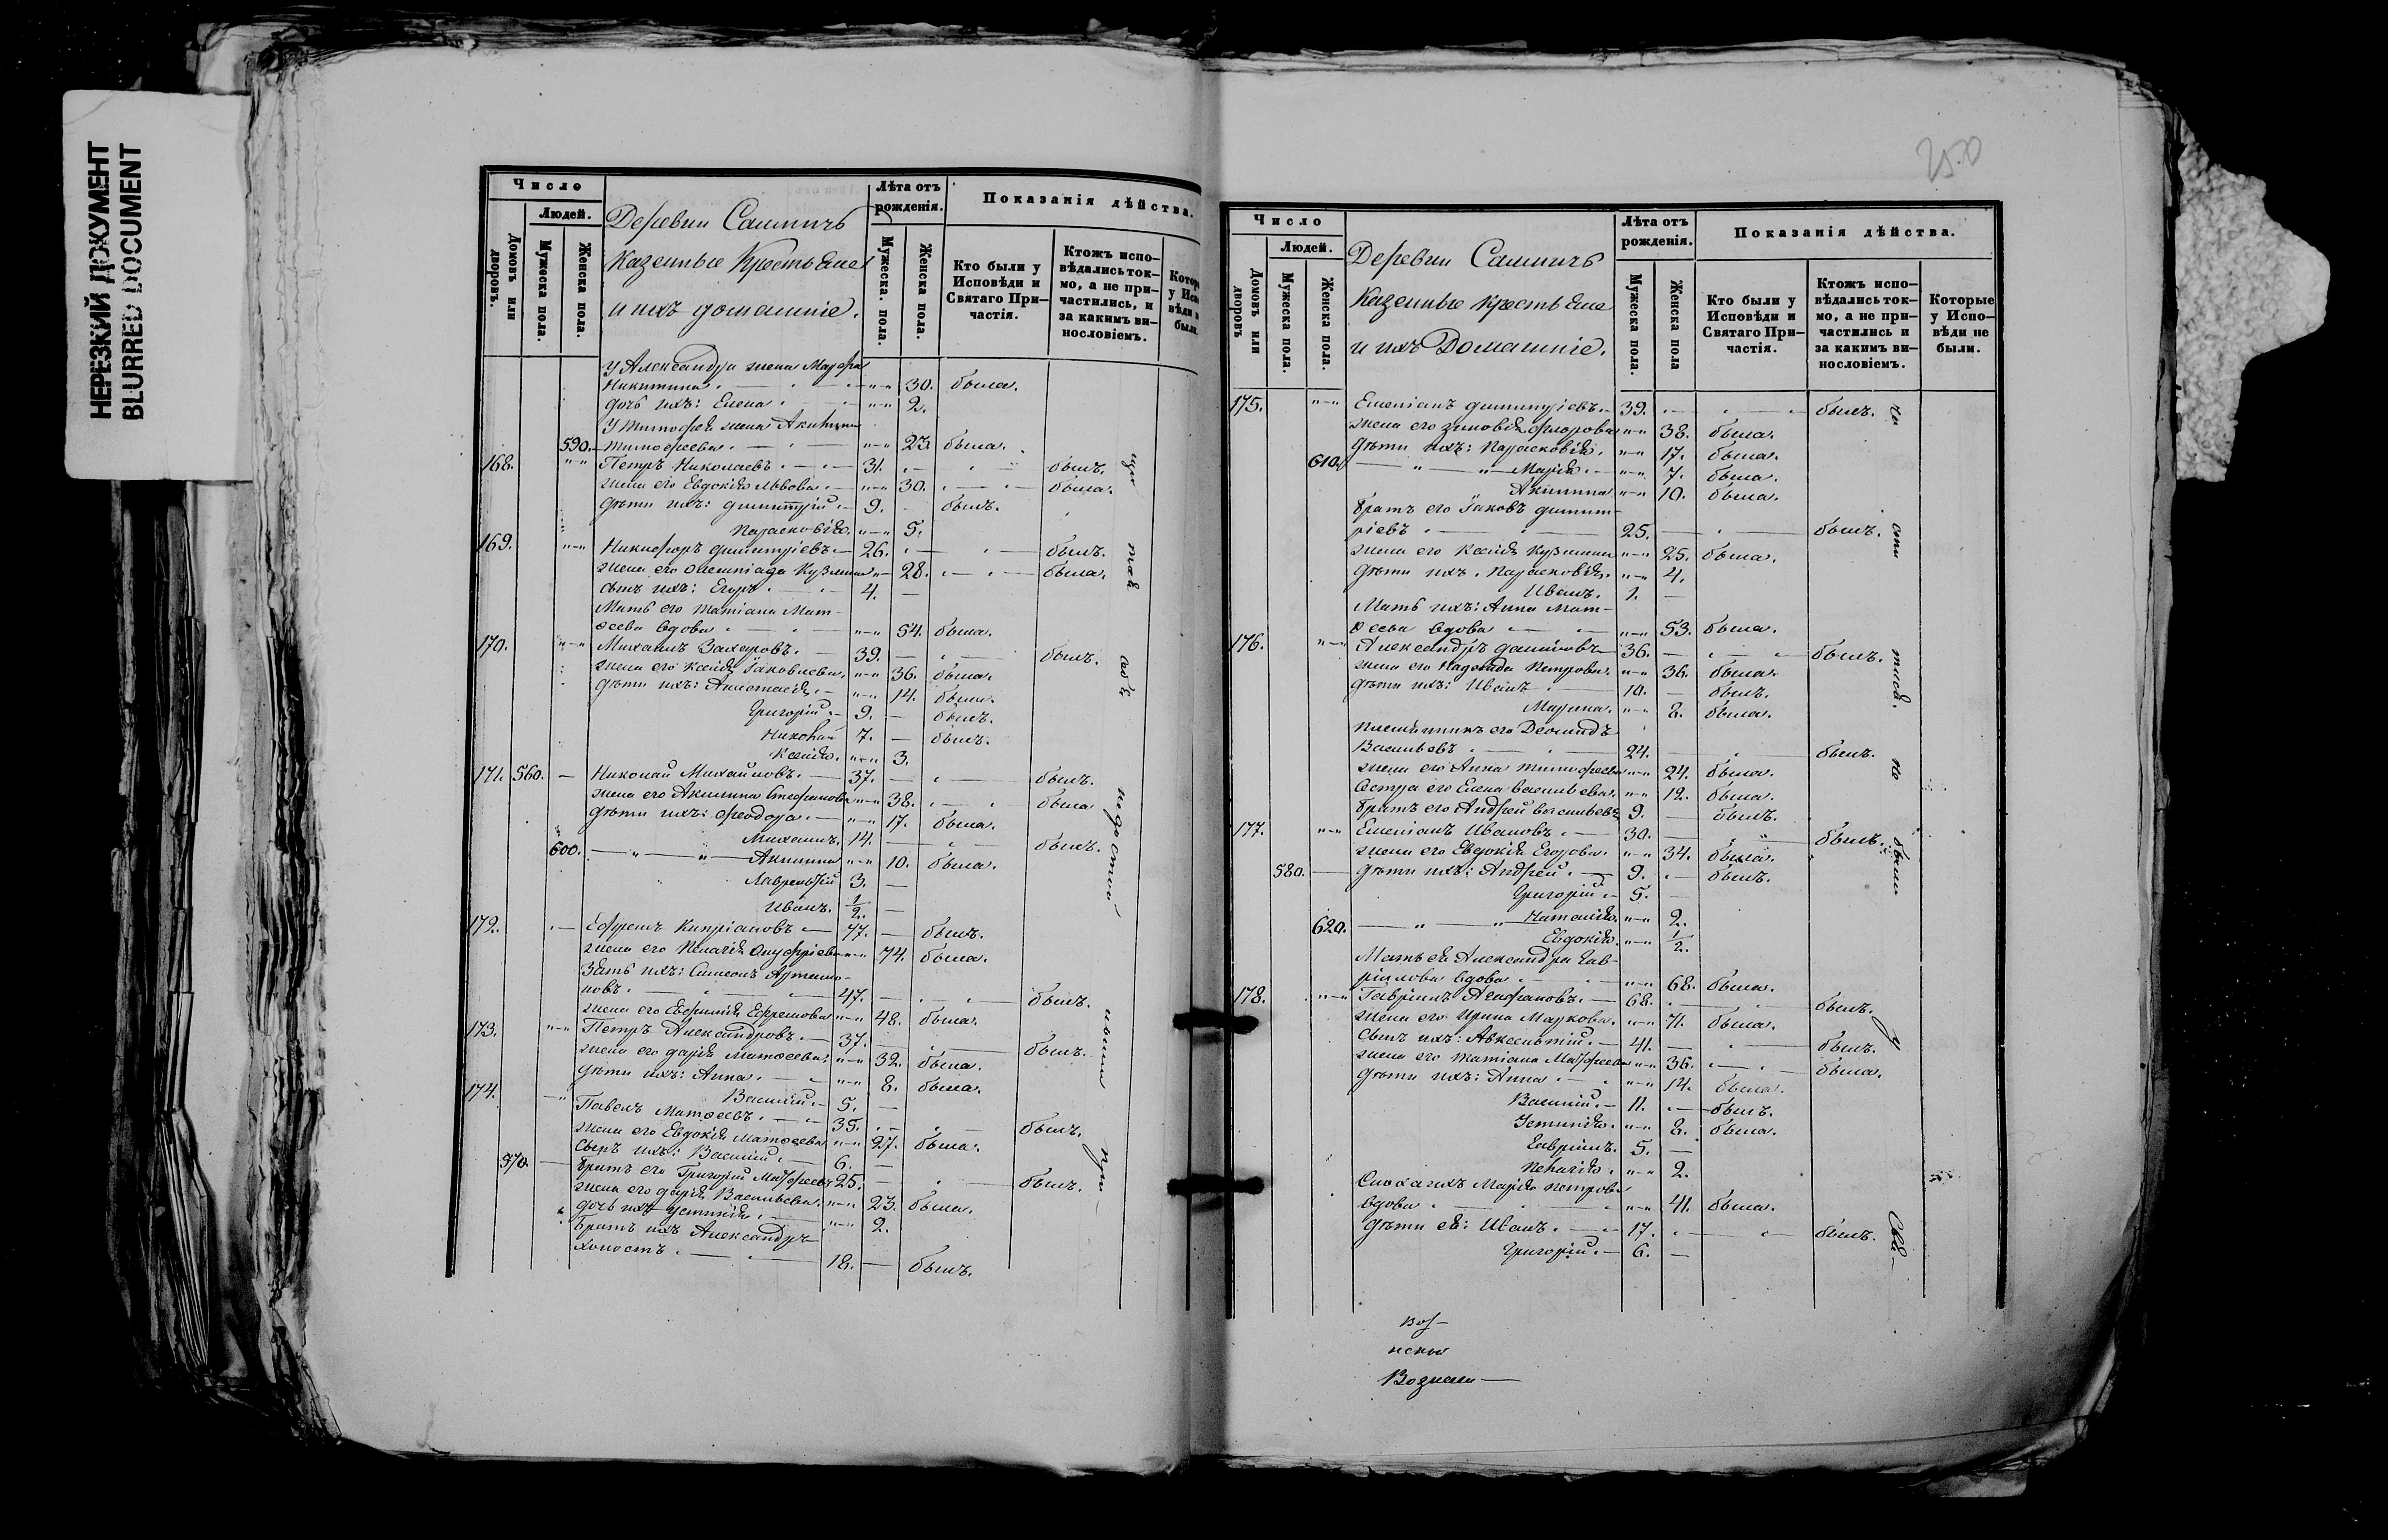 НЕРЕЗКИЙ ДОКУМЕНТ
BLURRED DOCUMENT
Число
Людей.
Домовъ или дворовъ.
Мужеска пола.
Женска пола.
Деревни Саммичъ
Казенные Крестьяне
и ихъ домашніе.
Лѣта отъ рожденія.
Мужеска. пола.
Женска пола.
Показанія дѣйства.
Кто были у Исповѣди и Святаго При-частія.
Ктожъ испо-вѣдались ток-мо, а не при-частились, и за какимъ ви-нословіемъ.
у Александра жена Марфа
Никитина. „-„ 30. была.
дочь ихъ: Елена „-„ 2.
У Тимофея жена Акилина
590. Тимофеева. „-„ 23. была.
168. „„ Петръ Николаевъ. 31. былъ.
жена его Евдокія Львова „-„ 30. была.
дѣти ихъ: Димитрій 9. былъ.
Парасковія. „-„ 5.
169. „-„ Никифоръ Димитріевъ. 26. былъ.
жена его Олимпіада Кузмина „- 28. была.
сынъ ихъ: Егоръ. 4. —
Мать его Татіана Мат-
ѳеева вдова „-„ 54. была.
170. „-„ Михаилъ Захаровъ. 39. былъ.
жена его Ксенія Іаковлева. „-„ 36. была.
дѣти ихъ: Анастасія „-„ 14. была.
Григорій. 9. — былъ.
Николай 7. — былъ.
Ксенія. „-„ 3.
171. 560. — Николай Михайловъ. 37. былъ.
жена его Акилина Стефанова „-„ 38. была
дѣти ихъ: Феодора. „-„ 17. была.
Михаилъ. 14. былъ.
600. Акилина „-„ 10. была.
Лаврентій 3. —
Иванъ. 1/2. —
172. Ефремъ Кипріановъ 77. — былъ.
жена его Пелагія Онуфріева „-„ 74. была.
Зять ихъ: Симеонъ Артемо-
новъ. 47. былъ.
жена его Евфимія Ефремова „-„ 48. была.
173. „-„ Петръ Александровъ. 37. былъ.
жена его Дарія Матѳеева. „-„ 32. была.
дѣти ихъ: Анна. „-„ 8. была.
Василій. 5. —
174. Павелъ Матѳеевъ. 35. былъ.
жена его Евдокія Матѳеева „-„ 27. была.
Сынъ ихъ: Василій. 6. —
570. братъ его Григорій Матфеевъ 25. былъ.
жена его Дарія Васильева. „-„ 23. была.
дочь ихъ Устинія. „-„ 2.
братъ ихъ Александръ
холостъ. 18. — былъ.
250
Число
Людей.
Домовъ или дворовъ
Мужеска пола.
Женска пола.
Деревни Саммичъ
Казенные Крестьяне
и ихъ Домашніе.
Лѣта отъ рожденія.
Мужеска пола.
Женска пола
Показанія дѣйства.
Кто были у Исповѣди и Святаго При-частія.
Ктожъ испо-вѣдались ток-мо, а не при-частились и за какимъ ви-нословіемъ.
Которые у Испо-вѣди не были.
175. „-„ Емеліанъ Димитріевъ. 39. былъ.
жена его Зиновія Флорова „-„ 38. была.
дѣти ихъ: Парасковія. „-„ 17. была.
610. Марія. „-„ 7. была.
Акилина „-„ 10. была.
братъ его Іаковъ Димит-
ріевъ 25. былъ.
жена его Ксенія Кузмина „-„ 25. была.
дѣти ихъ. Парасковія. „-„ 4.
Иванъ. 1. —
Мать ихъ: Анна Мат-
ѳеева вдова „-„ 53. была.
176. „-„ Александръ Даниловъ 36. былъ.
жена его Надежда Петрова. „-„ 36. была.
дѣти ихъ: Иванъ 10. — былъ.
Марина. „-„ 8. была.
племянникъ его Деомидъ
Васильевъ 24. былъ.
жена его Анна Тимофеева „-„ 24. была.
Сестра его Елена Васильева. „-„ 12. была.
братъ его Андрей Васильевъ 9. — былъ.
177. „-„ Емеліанъ Ивановъ. 30. былъ.
жена его Евдокія Егорова. „-„ 34. была.
580. дѣти ихъ: Андрей. 9. былъ.
Григорій 5. —
620. Наталія. „-„ 2.
Евдокія. „-„ 1/2.
Мать ея Александра Гав-
рілова вдова „-„ 68. была.
178. „-„ Гавріилъ Агафановъ. 68. былъ.
жена его Ирина Маркова. „-„ 71. была.
Сынъ ихъ: Авксентій. 41. былъ.
жена его Татіана Матфеева „-„ 36. была.
дѣти ихъ: Анна. „-„ 14. была.
Василій. 11. былъ.
Устинія. „-„ 8. была.
Гавріилъ. 5. —
Пелагія. „-„ 2.
Сноха ихъ Марія Петрова
вдова „-„ 41. была.
дѣти её: Иванъ. 17. былъ.
Григорій. 6. —